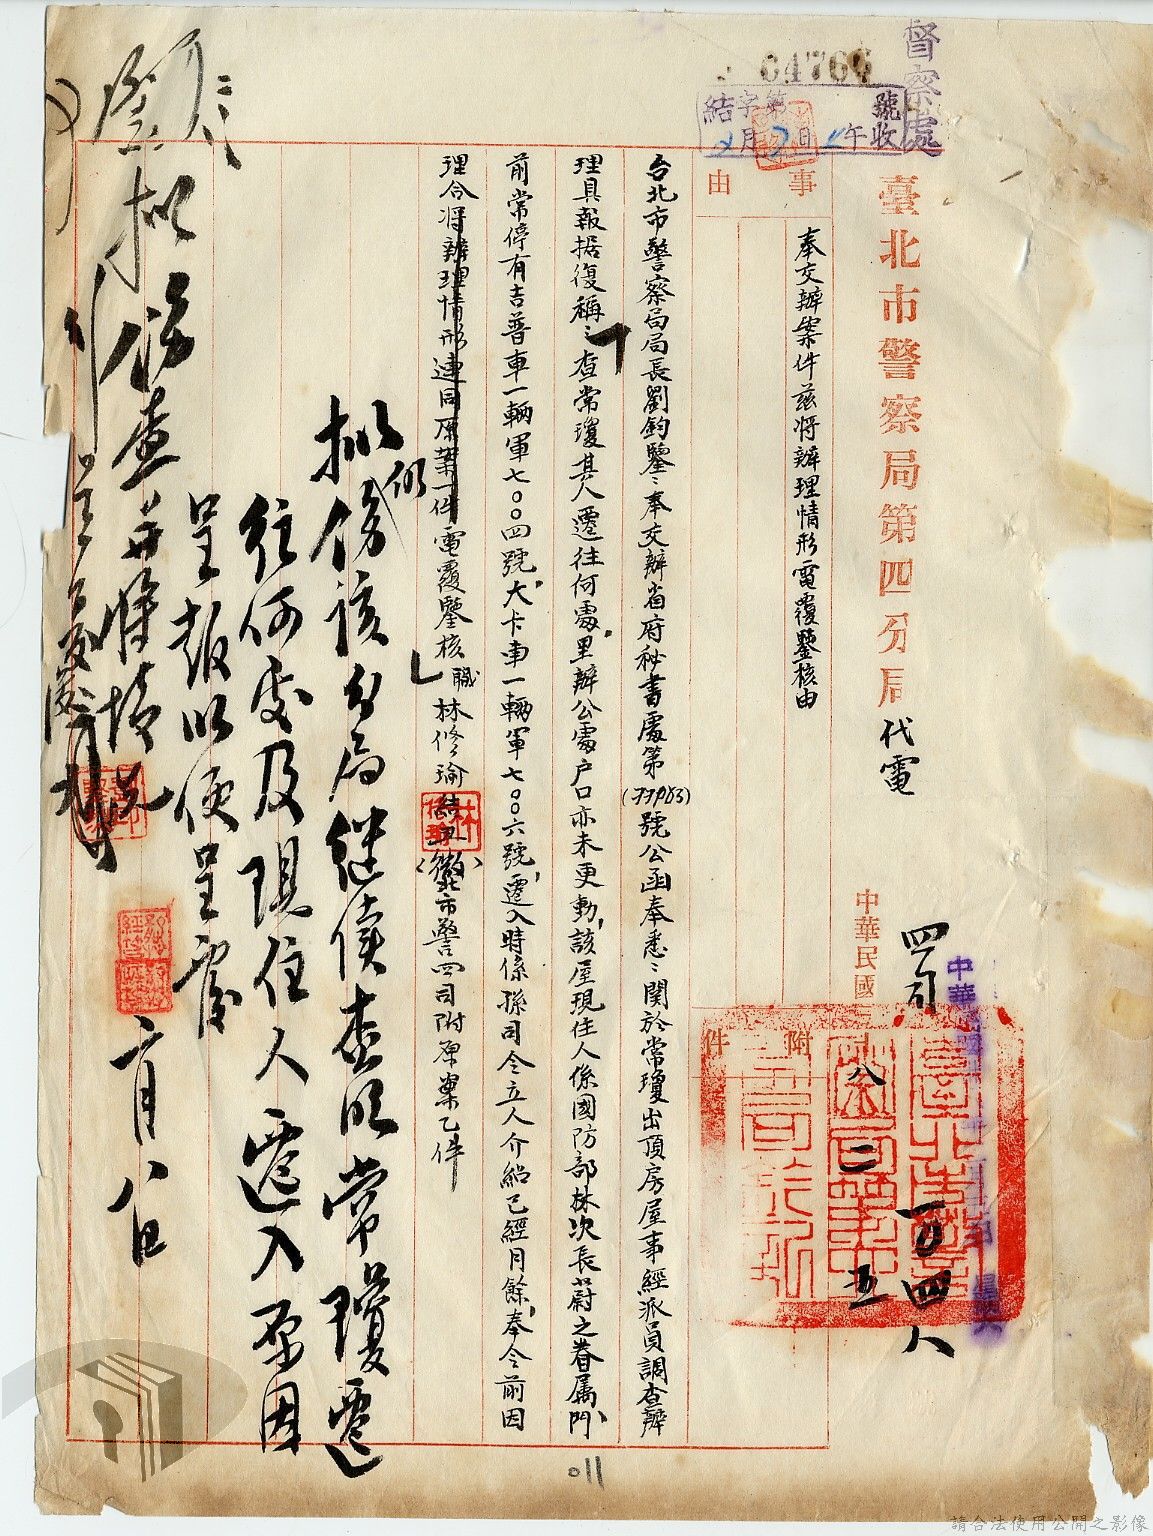 督察處
04766
結字第 號收
月 日 午
臺北市警察局第四分局代電
中華民國
四司
八 二 五
一〇四八
事由
奉交辦案件兹將辦理情形電覆鑒核由
附件
台北市警察局局長劉鈞鑒:奉交辦省府秘書處第(77963)號公函奉悉:関於常瓊出頂房屋事經派員調查辦
理具報据復稱:「查常瓊其人遷往何處,里辦公處户口亦未更動,該屋現住人係國防部林次長蔚之眷属,門
前常停有吉普車一輛軍七〇〇四號,大卡車一輛軍七〇〇六號,遷入時係孫司令立人介紹已經月餘,奉令前因
理合將辦理情形連同原案一件電覆鑒核」職林修瑜 北市警四司附原案乙件
擬仍飭該分局継续查明常瓊遷
往何處及現住人遷入原因
呈報以便呈覆
擬飭查并將情况
二月八日
011
請合法使用公開之影像